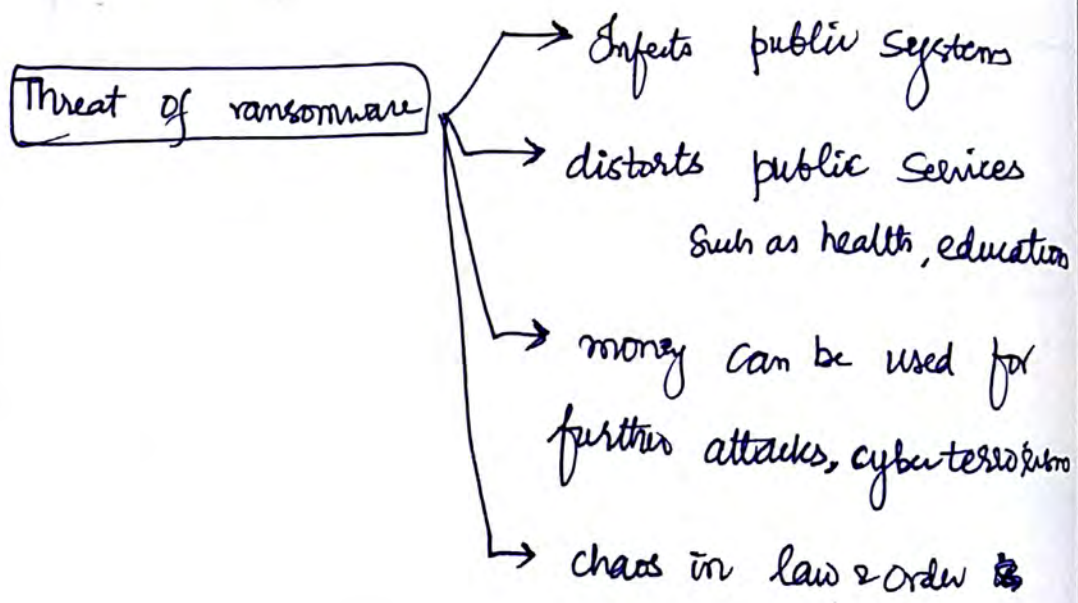 Threat of ransomware
Infects public systems
distorts public services
such as health, education
money can be used for
further attacks, cyberterrorism
chaos in law & order